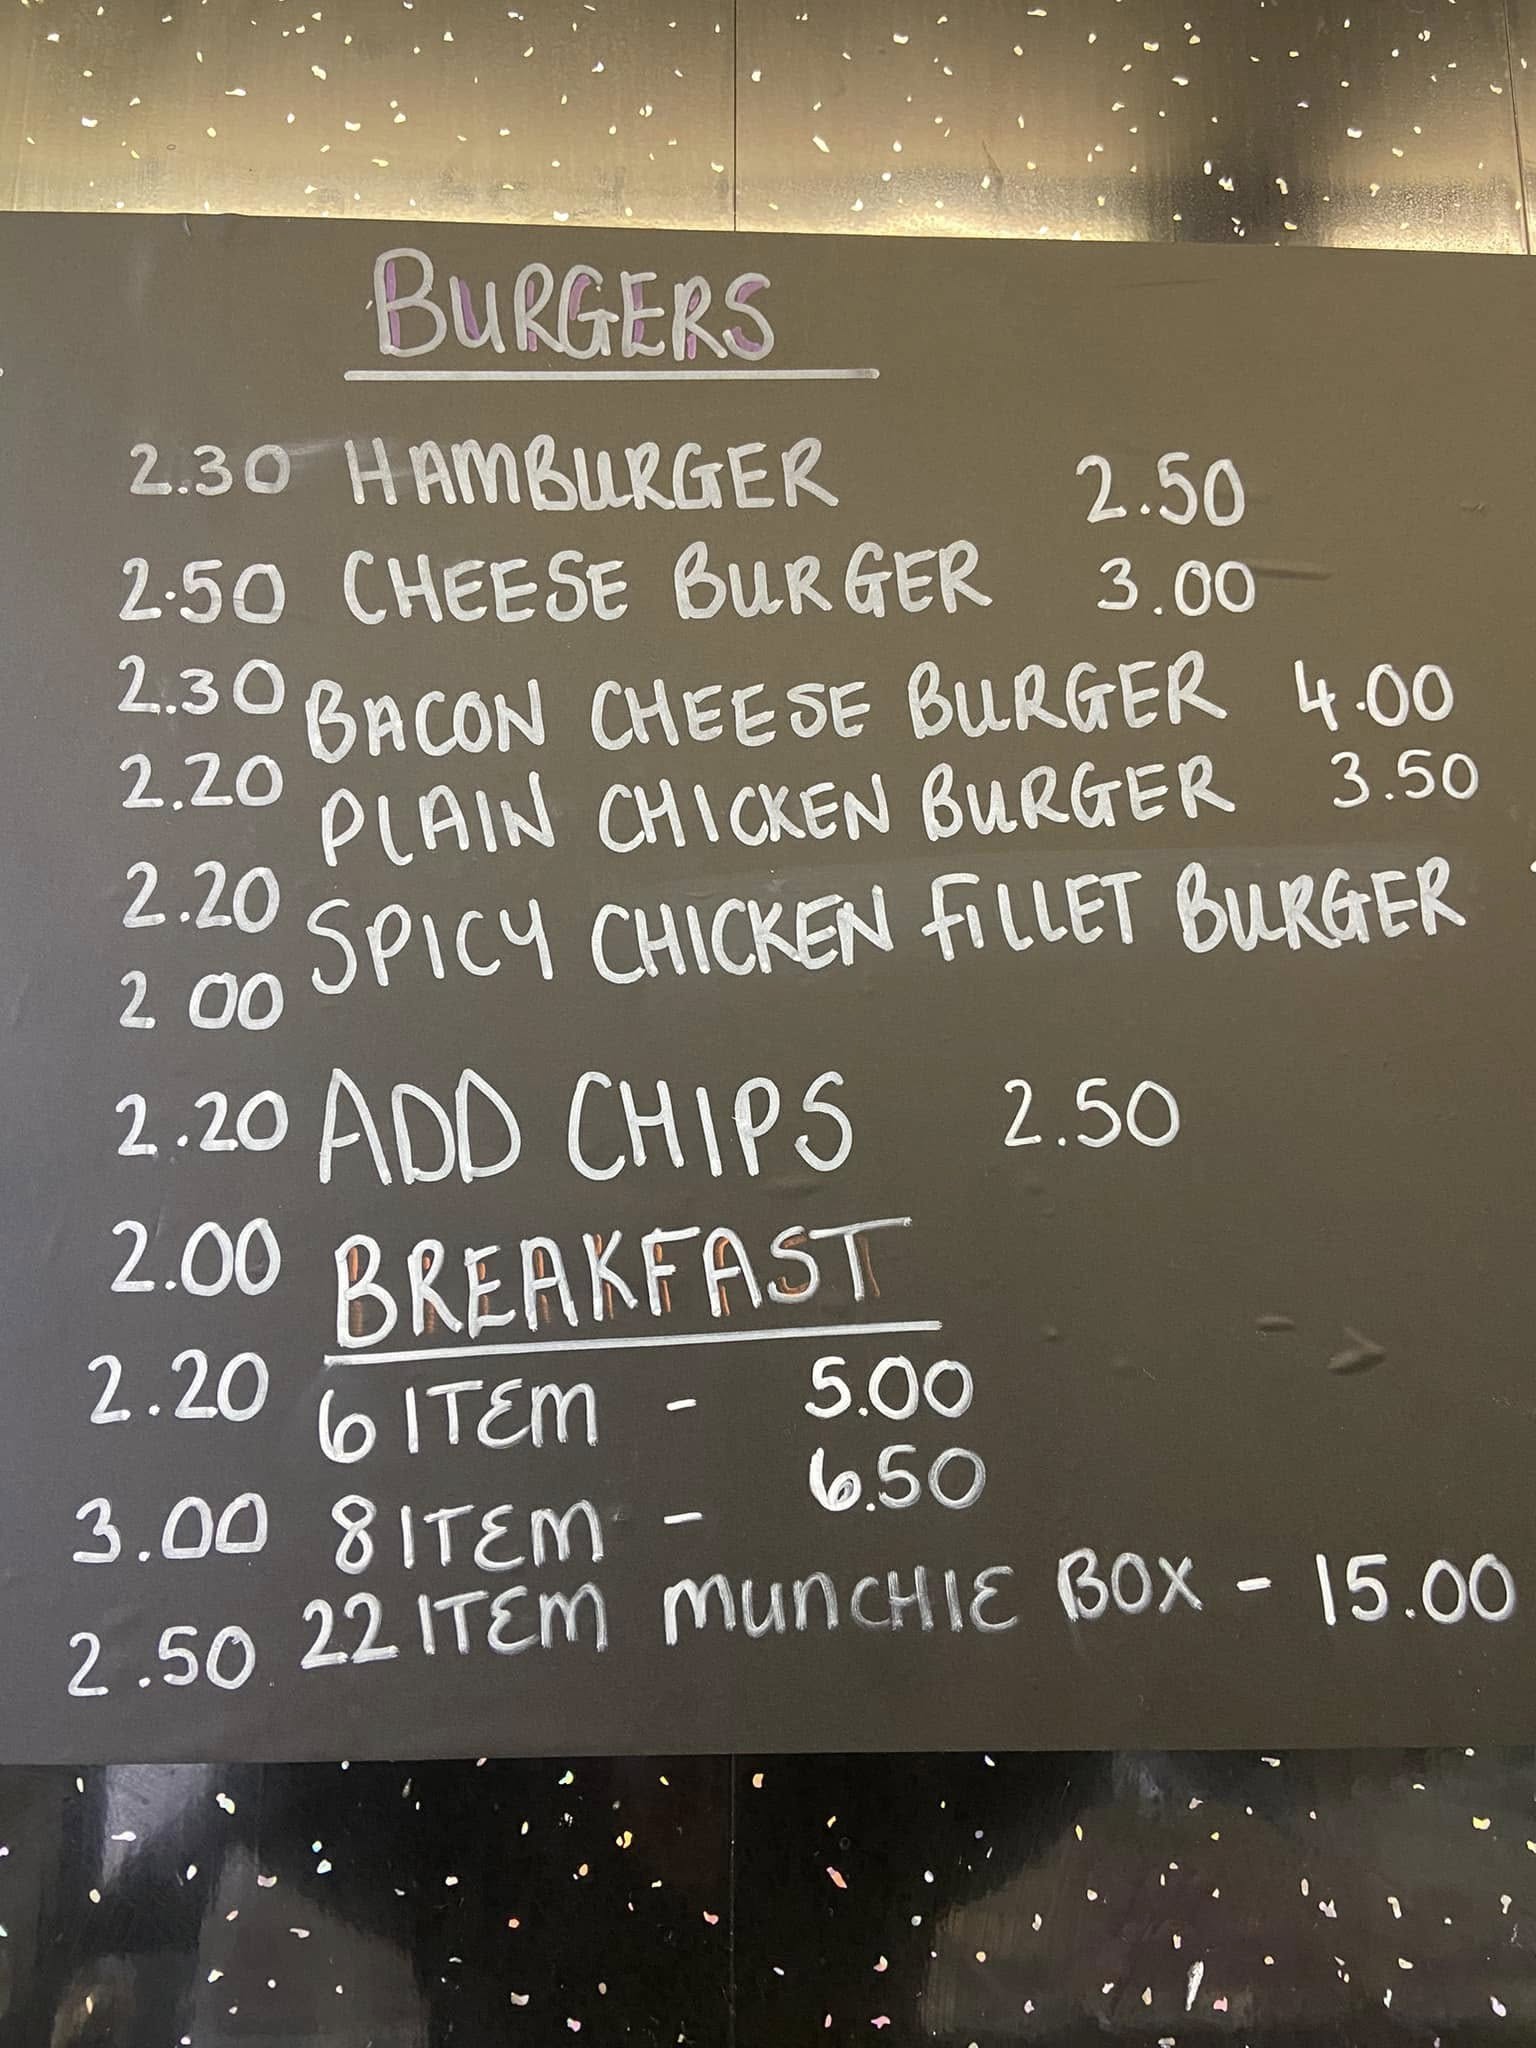 BURGERS
2.30 HAMBURGER 2.50
2.50 CHEESE BURGER 3.00
2.30 BACON CHEESE BURGER 4.00
2.20 PLAIN CHICKEN BURGER 3.50
2.20 SPICY CHICKEN FILLET BURGER
2 00
2.20 ADD CHIPS 2.50
2.00 BREAKFAST
2.20 6 ITEM - 5.00
3.00 8 ITEM - 6.50
2.50 22 ITEM MUNCHIE BOX - 15.00